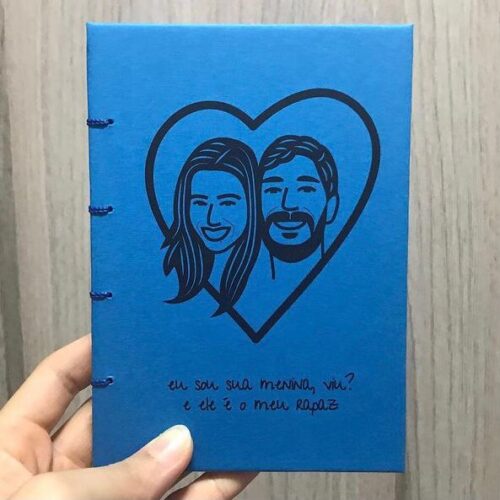 eu sou sua menina, viu?
e ele é o meu rapaz